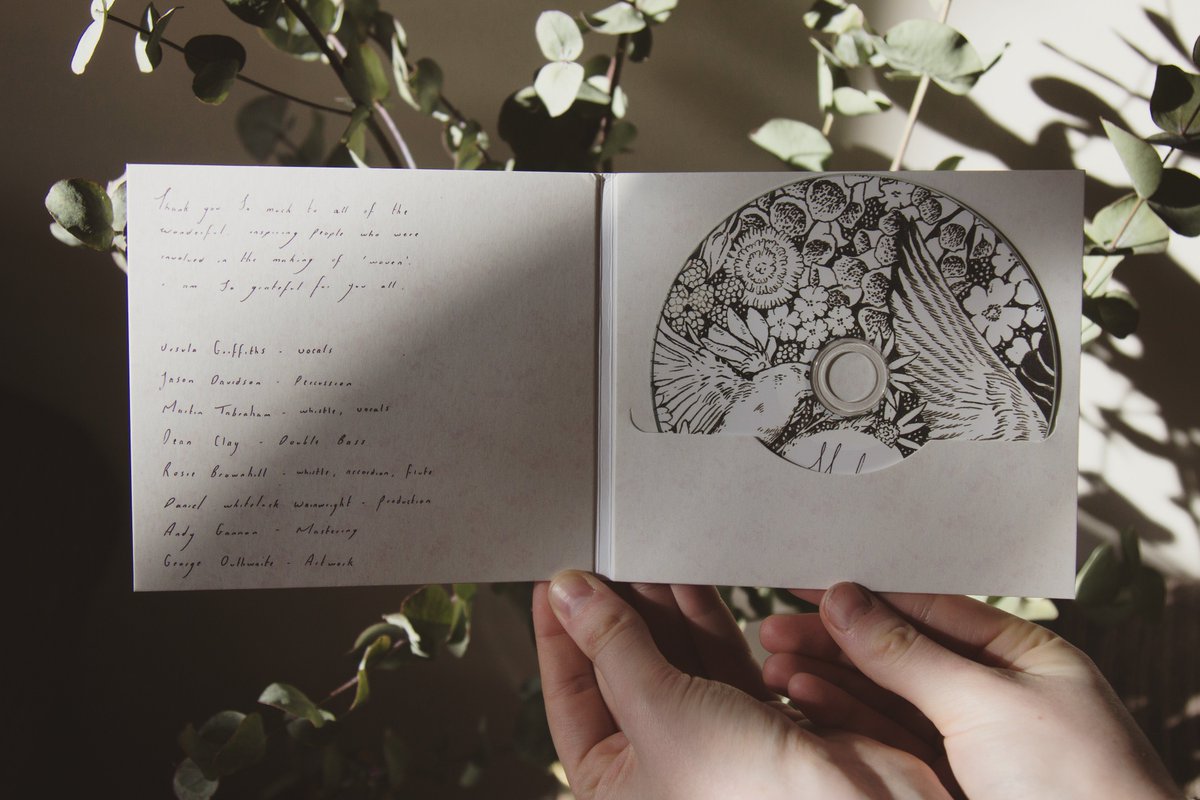 Thank you so much to all of the
wonderful, inspiring people who were
involved in the making of 'woven'.
i am so grateful for you all.
Ursula Griffiths - vocals
Jason Davidson - Percussion
Martin Tabraham - whistle, vocals
Dean Clay - Double Bass
Rosie Brownhill - whistle, accordion, flute
Daniel whitelock wainwright - Production
Andy Gannon - Mastering
George Outhwaite - Artwork